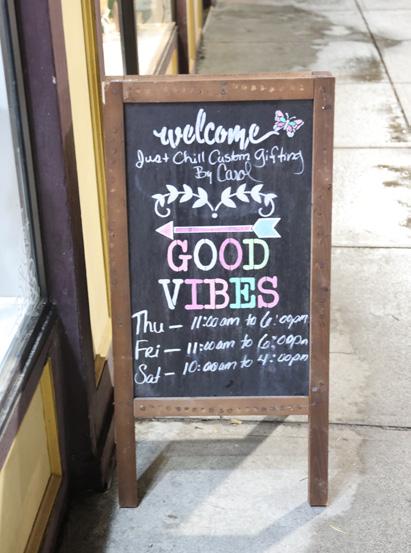 welcome
Just Chill Custom Gifting
By Carol
GOOD
VIBES
Thu - 11:00am to 6:00pm
Fri - 11:00am to 6:00pm
Sat - 10:00am to 4:00pm